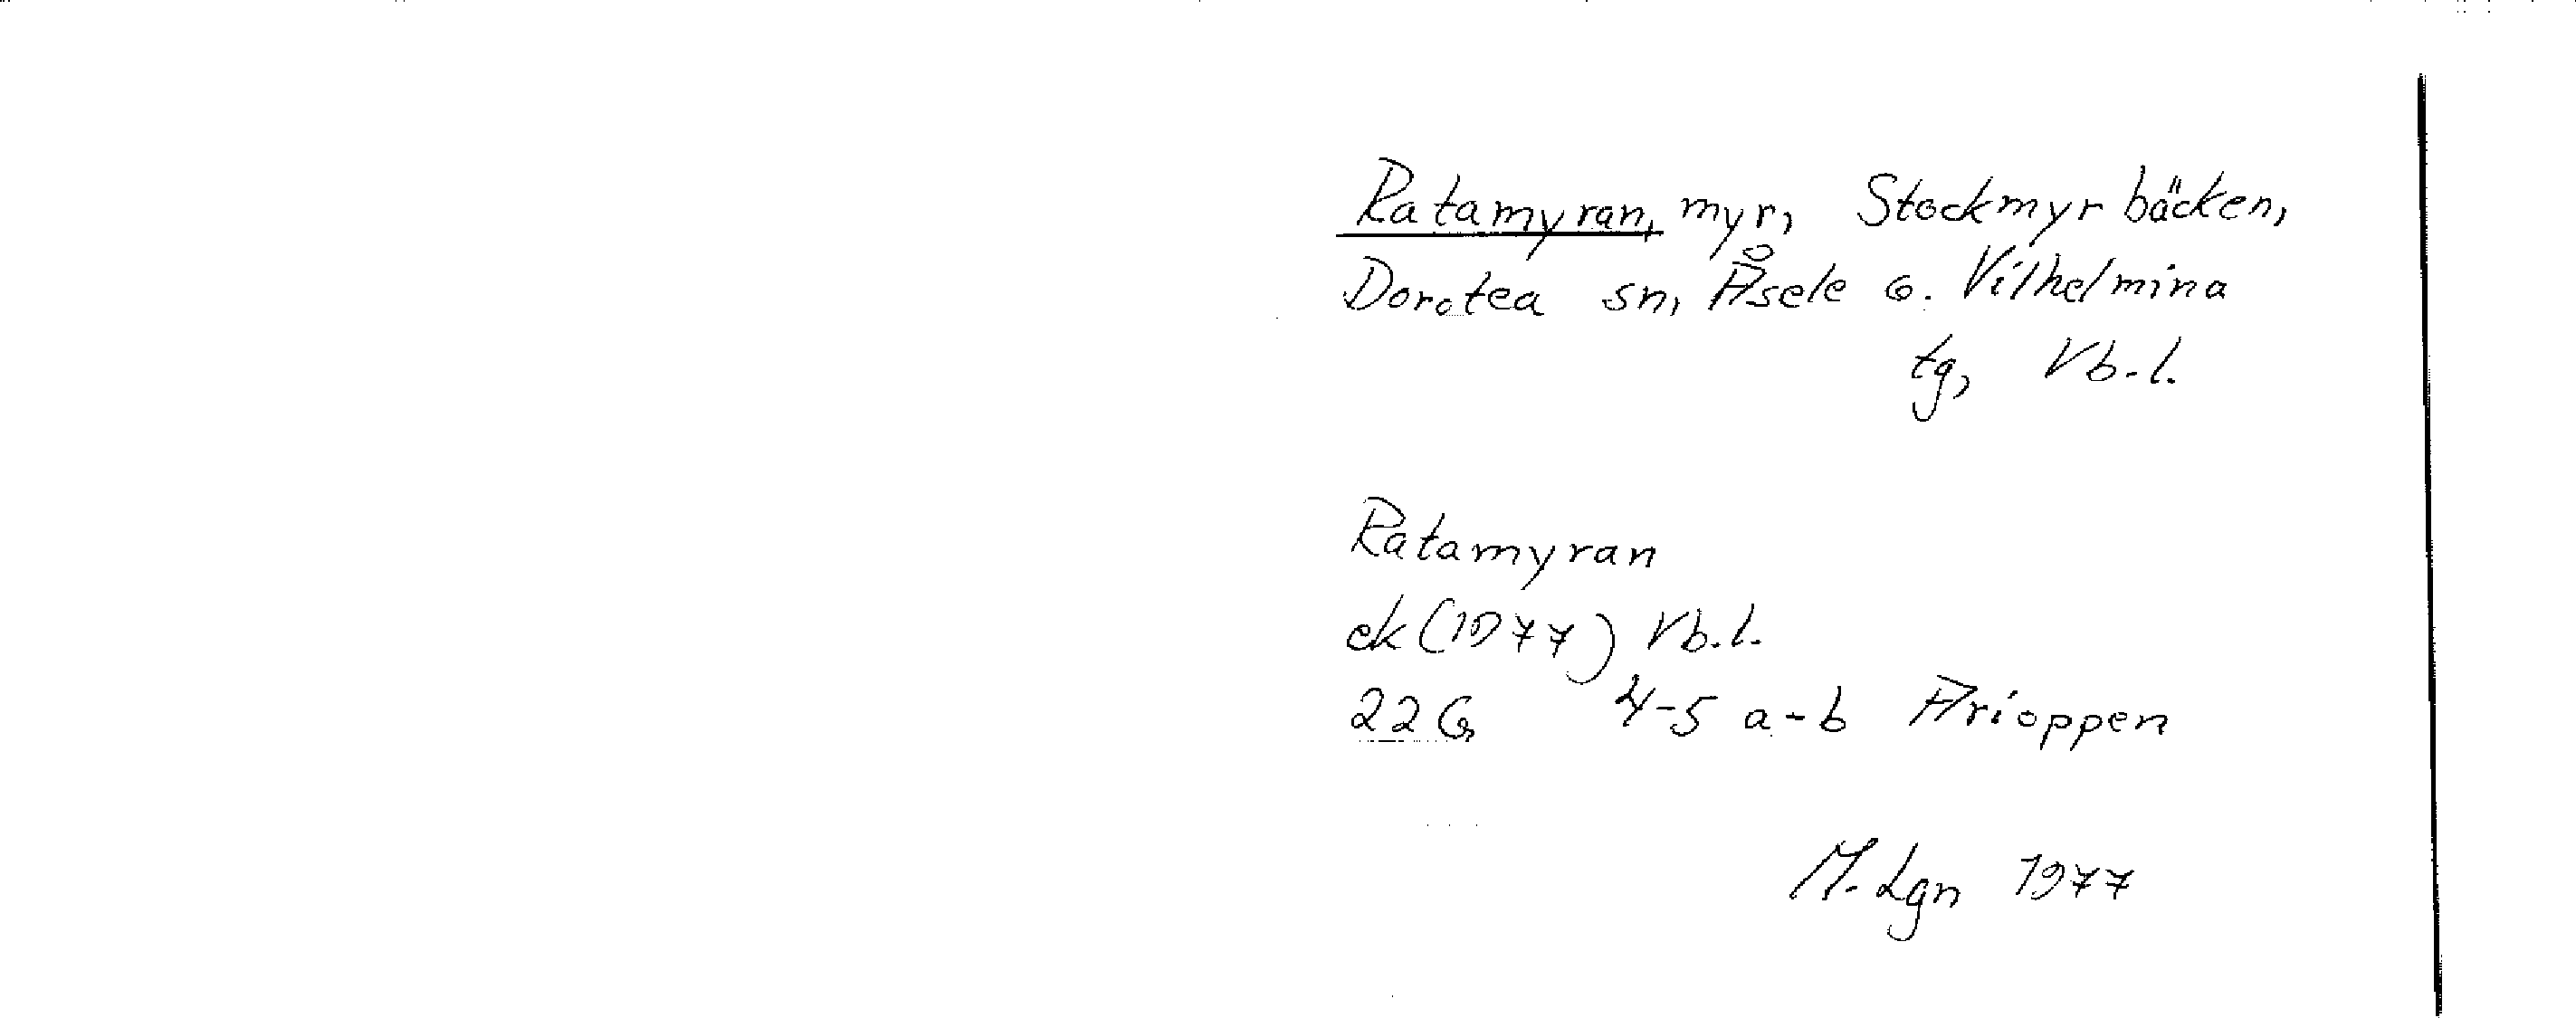 Ratamyran, myr, Stockmyrbäcken,
Dorotea sn, Åsele o. Vilhelmina
tg, Vb.l.
Ratamyran
ek (1977) Vb.l.
22G 4-5 a-b Arioppen
M. Lgn 1977